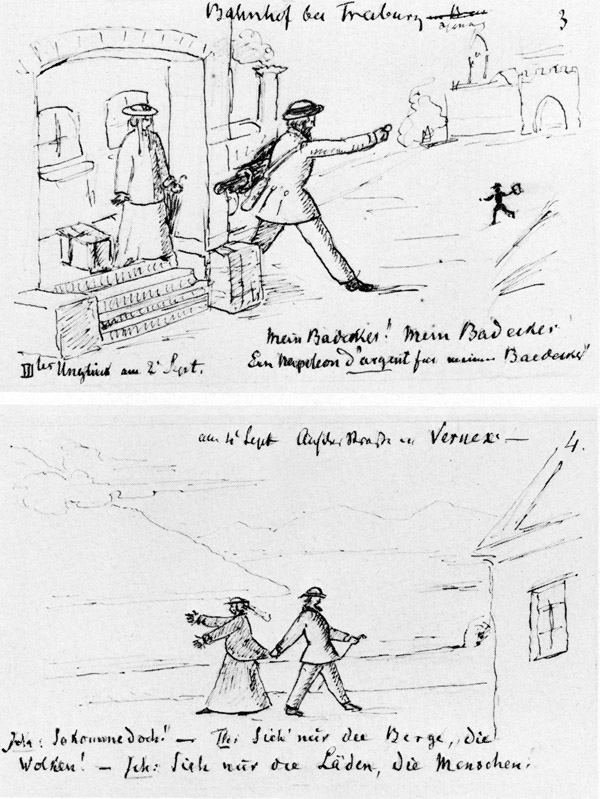 Bahnhof bei Freiburg
3
Mein Badecker! Mein Badecker!
III Unglück am 2t Sept.
Ein Napoleon d'argent für meinen Baedecker!
am 4t Sept Auf der Straße in Vernex. —
4.
Joh: So komme doch! — Th: Sieh' nur die Berge, die
Wolken! — Joh: Sieh nur die Läden, die Menschen.